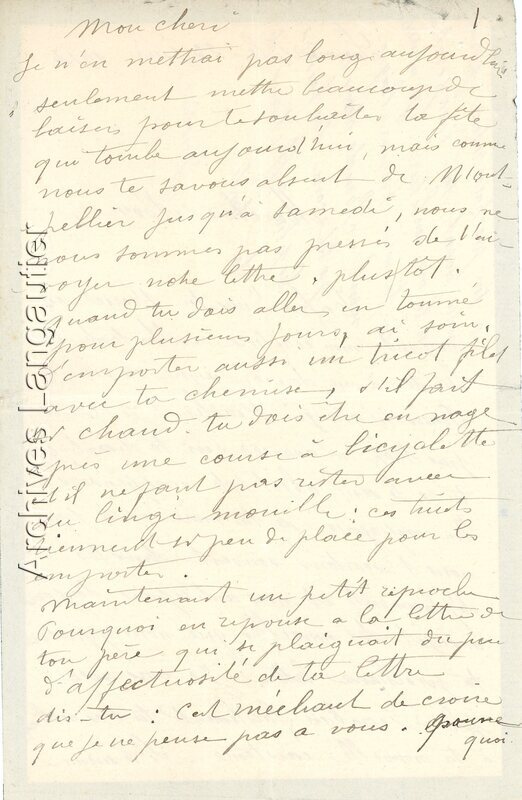 1
Mon cheri
Je n'en mettrai pas long aujourd'hui
seulement mettre beaucoup de
baisers pour te souhaiter ta fête
qui tombe aujourd'hui, mais comme
nous te savons absent de Mont-
pellier jusqu'à samedi, nous ne
nous sommes pas pressés de t'en-
voyer notre lettre. plustôt.
quand tu dois aller en tourné
pour plusieurs jours, ai soin,
d'emporter aussi un tricot filet
avec ta chemise, s'il fait
si chaud. tu dois être en nage
après une course à bicyclette
et il ne faut pas rester avec
du linge mouillé: ces tricots
tiennent si peu de place pour les
emporter.
Maintenant un petit reproche
Pourquoi en reponse a la lettre de
ton père qui se plaignait du peu
d'affectuosité de ta lettre
dis-tu: c'est méchant de croire
que je ne pense pas a vous.
quoi
Archives Langautier